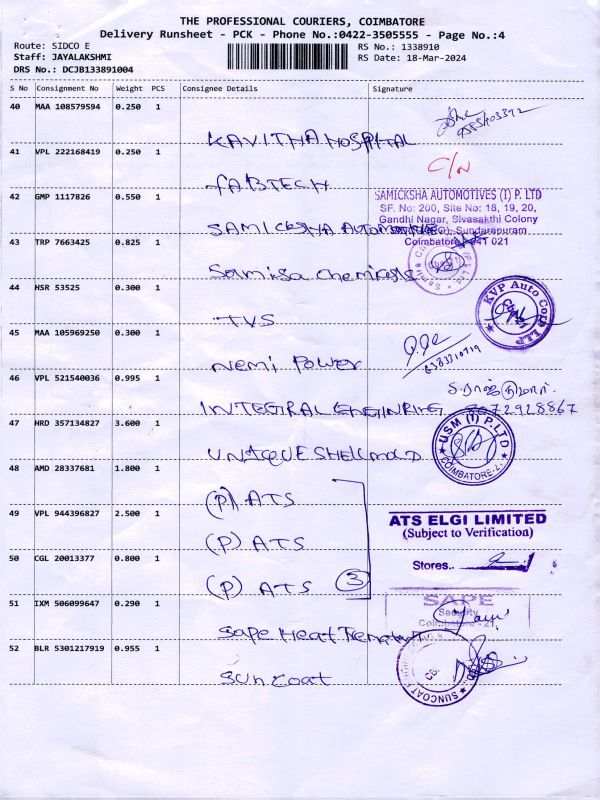 THE PROFESSIONAL COURIERS, COIMBATORE
Delivery Runsheet - PCK - Phone No.:0422-3505555 - Page No.:4
Route: SIDCO E
RS No.: 1338910
Staff: JAYALAKSHMI
RS Date: 18-Mar-2024
DRS No.: DCJB133891004
S No Consignment No Weight PCS Consignee Details Signature
40 MAA 108579594 0.250 1
KAVITHA HOSPITAL
41 VPL 222168419 0.250 1
C/N
FABTECH
42 GMP 1117826 0.550 1
SAMICKSHA AUTOMOTIVES (I) P. LTD
SF. No: 200, Site No: 18, 19, 20,
Gandhi Nagar, Sivasakthi Colony
SAMICKSHA AUTOMOTIVE
Sundarapuram
43 TRP 7663425 0.825 1
Coimbatore - 641 021
Samisa Chemicals
44 HSR 53525 0.300 1
KVP Auto Corp LLP
TVS
45 MAA 105969250 0.300 1
6383310719
Nemi Power
46 VPL 521540036 0.995 1
INTEGRAL ENGINRING 8072928867
47 HRD 357134827 3.600 1
USM (I) P.LTD
COIMBATORE-21
UNIQUE SHELL MOLD
48 AMD 28337681 1.800 1
(P) ATS
49 VPL 944396827 2.500 1
ATS ELGI LIMITED
(Subject to Verification)
(P) ATS
50 CGL 20013377 0.800 1
Stores..
(P) ATS 3
51 IXM 506099647 0.290 1
SAPE
Security
Coimbatore - 21
Sape Heart Tremat
52 BLR 5301217919 0.955 1
SUNCOAT
Sun coat